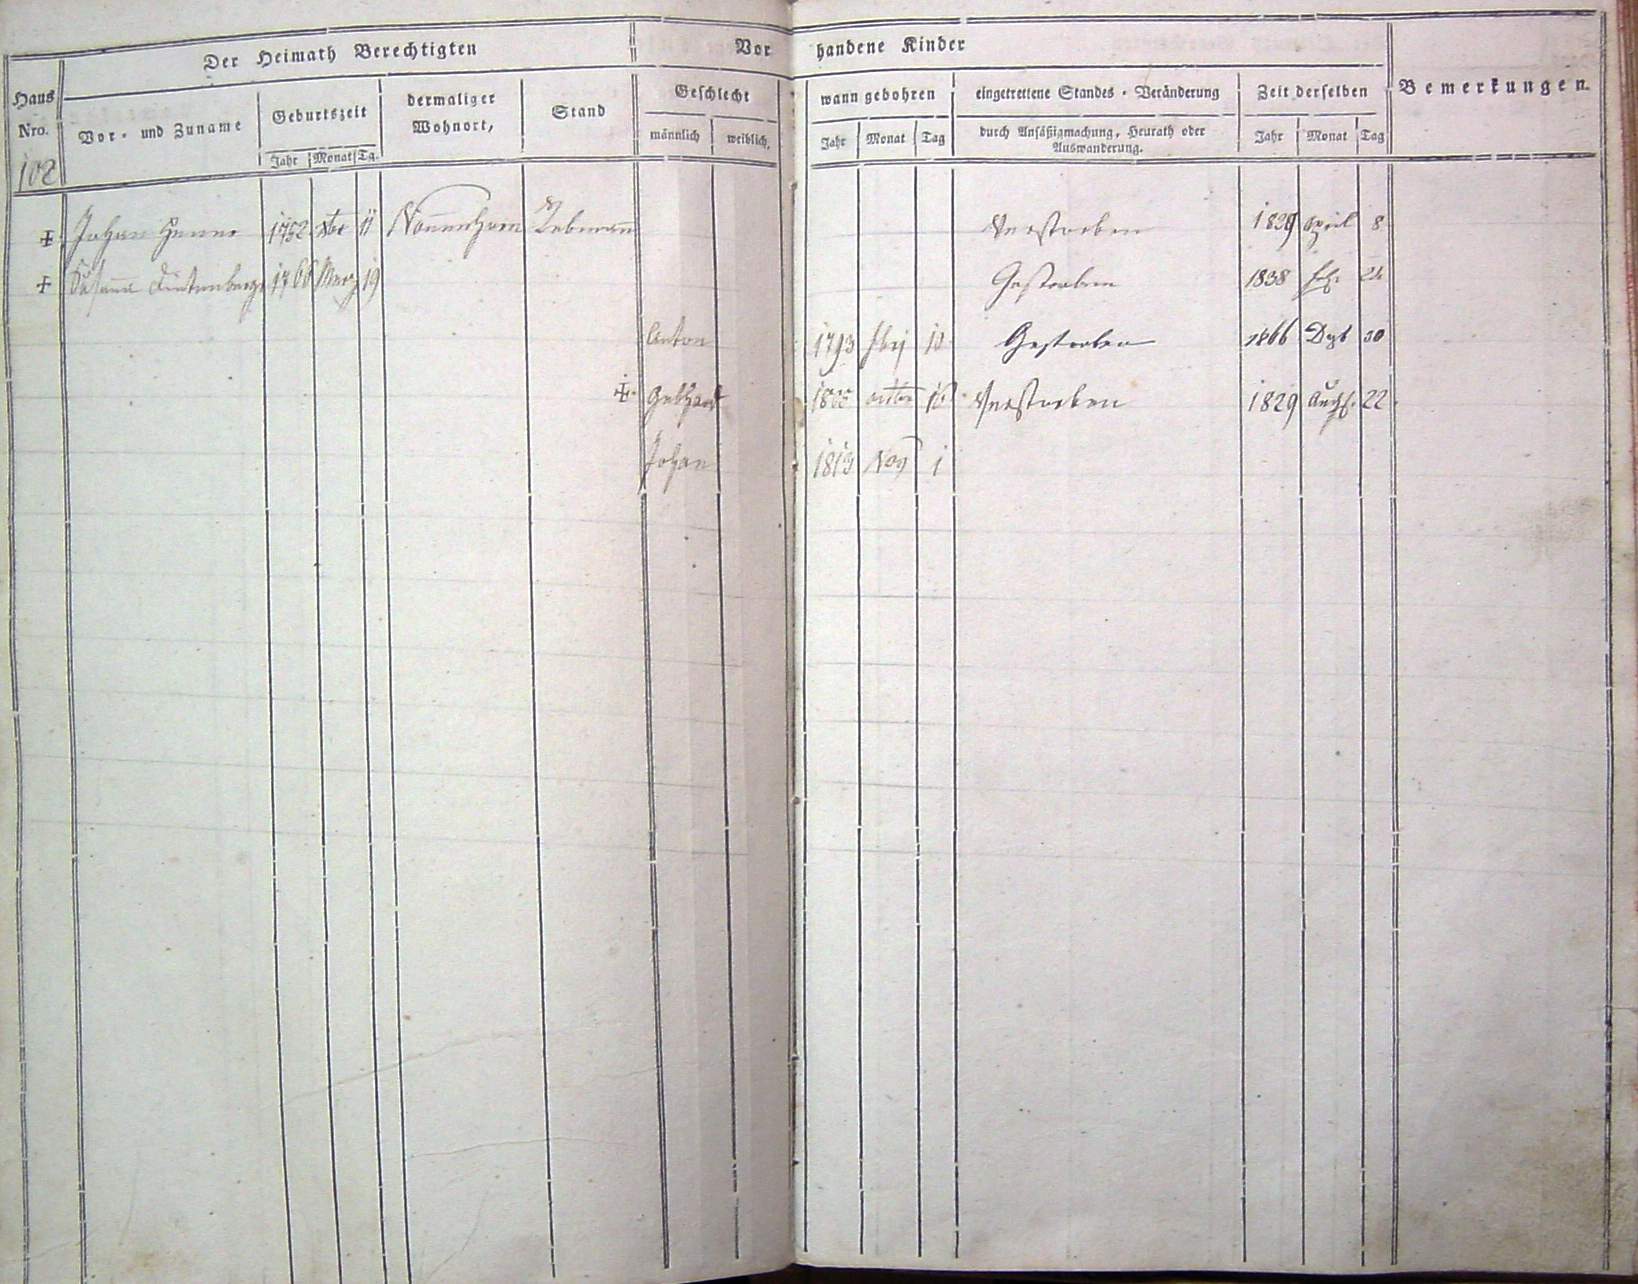 Der Heimath Berechtigten
Vorhandene Kinder
Haus Nro.
Vor- und Zuname
Geburtszeit
Jahr Monat Tg.
dermaliger Wohnort,
Stand
Geschlecht
männlich weiblich.
wann gebohren
Jahr Monat Tag
eingetrettene Standes-Veränderung
durch Ansäßigmachung, Heurath oder
Auswanderung.
Zeit derselben
Jahr Monat Tag
Bemerkungen.
102
Johan 1752 11 Nonnenhorn Rebmann Verstorben 1829 April 8
Susana 1766 Merz 19 Gestorben 1838
Anton 1793 10 Gestorben 1866 Dezb 30
Gebhard Verstorben 1829 Augs. 22
Johan 1813 Nov 1